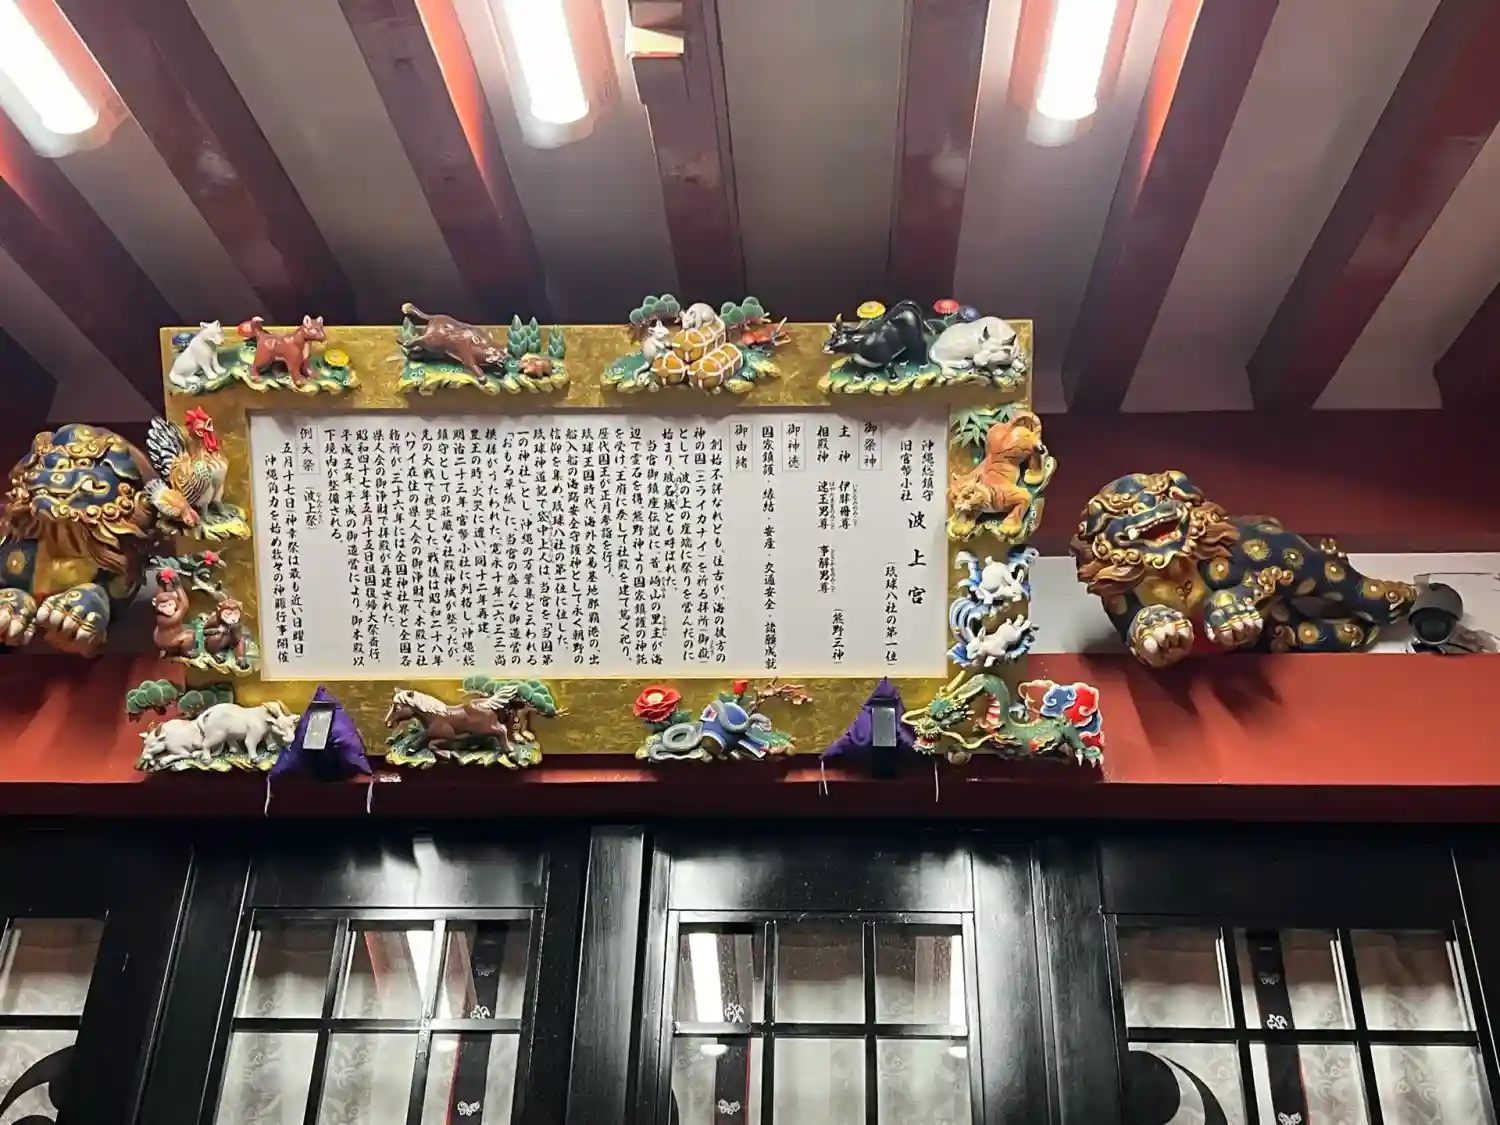 沖縄総鎮守
旧官幣小社 波上宮
(琉球八社の第一位)
御祭神
主神 伊弉冊尊 (熊野三神)
いざなみのみこと
相殿神 速玉男尊 事解男尊
はやたまをのみこと ことさかをのみこと
御神徳
国家鎮護・縁結・安産・交通安全・諸願成就
御由緒
創始不詳なれども、往古が、海の彼方の
神の国(ニライカナイ)を祈る拝所(御嶽)
として、波の上の崖端に祭りを営んだのに
始まり、波石城とも呼ばれた。
当宮御鎮座伝説に、昔、崎山の里主が海
辺で霊石を得、熊野神より国家鎮護の神託
を受け、王府に奏して社殿を建て篤く祀り、
歴代国王が正月参詣を行う。
琉球王国時代、海外交易基地那覇港の、出
船入船の海路安全守護神として永く朝野の
信仰を集め、琉球八社の第一位に位した。
琉球神道記で袋中上人は、当宮を「当国第
一の神社」とし、沖縄の万葉集と云われる
「おもろ草紙」に、当宮の盛んな御造営の
模様がうたわれた。寛永十年(一六三三)尚
豊王の時、火災に遭い、同十二年再建、
明治二十三年、官幣小社に列格し、沖縄総
鎮守としての荘厳な社殿神域が整ったが、
先の大戦で被災した。戦後は昭和二十八年
ハワイ在住の県人会の御浄財で、本殿と社
務所が、三十六年には全国神社界と全国各
県人会の御浄財で拝殿が再建された。
昭和四十七年五月十五日祖国復帰大祭斎行、
平成五年、平成の御造営により、御本殿以
下境内が整備される。
例大祭 (波上祭)
五月十七日(神幸祭は最も近い日曜日)
沖縄角力を始め数々の神賑行事開催